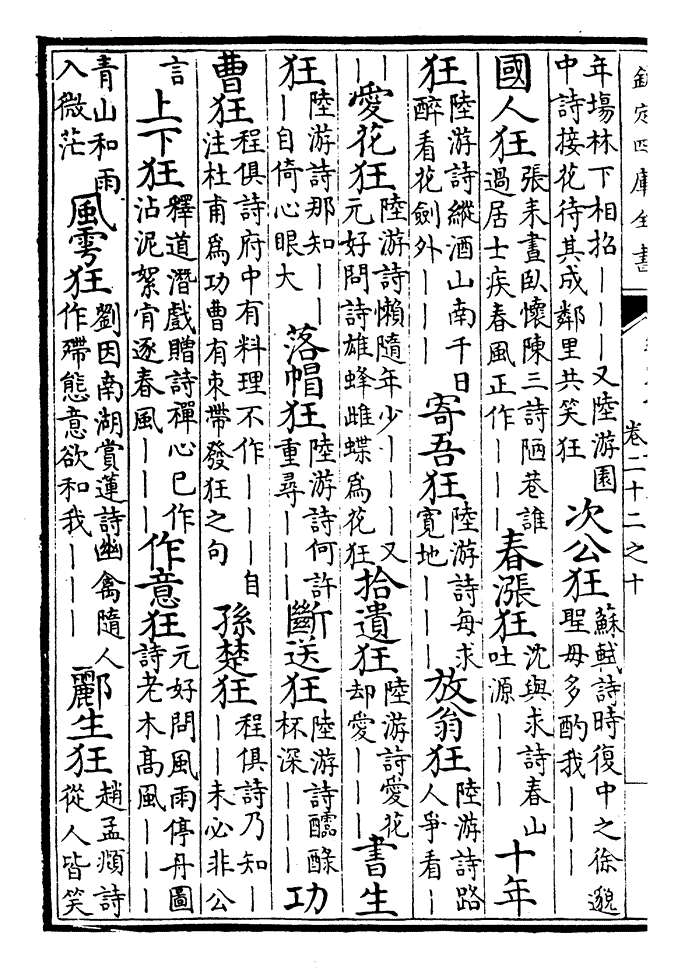 欽定四庫全書 卷二十二之十
年塲林下相招｜｜｜又陸游園中詩接花待其成鄰里共笑狂 次公狂 蘇軾詩時復中之徐邈聖毋多酌我｜｜｜
國人狂 張耒晝臥懷陳三詩陋巷誰過居士疾春風正作｜｜｜ 春漲狂 沈與求詩春山吐源｜｜｜ 十年
狂 陸游詩縱酒山南千日醉看花劍外｜｜｜ 寄吾狂 陸游詩每求寛地｜｜｜ 放翁狂 陸游詩路人爭看｜
｜｜ 愛花狂 陸游詩懶隨年少｜｜｜又元好問詩雄蜂雌蝶爲花狂 拾遺狂 陸游詩愛花却愛｜｜｜ 書生
狂 陸游詩那知｜｜｜自倚心眼大 落帽狂 陸游詩何許重尋｜｜｜ 斷送狂 陸游詩醽醁杯深｜｜｜ 功
曹狂 程俱詩府中有料理不作｜｜｜自注杜甫爲功曹有束帶發狂之句 孫楚狂 程俱詩乃知｜｜｜未必非公
言 上下狂 釋道潛戲贈詩禪心已作沾泥絮肯逐春風｜｜｜ 作意狂 元好問風雨停舟圖詩老木高風｜｜｜
青山和雨入微茫 風雩狂 劉因南湖賞蓮詩幽禽隨人作殢態意欲和我｜｜｜ 酈生狂 趙孟頫詩從人皆笑